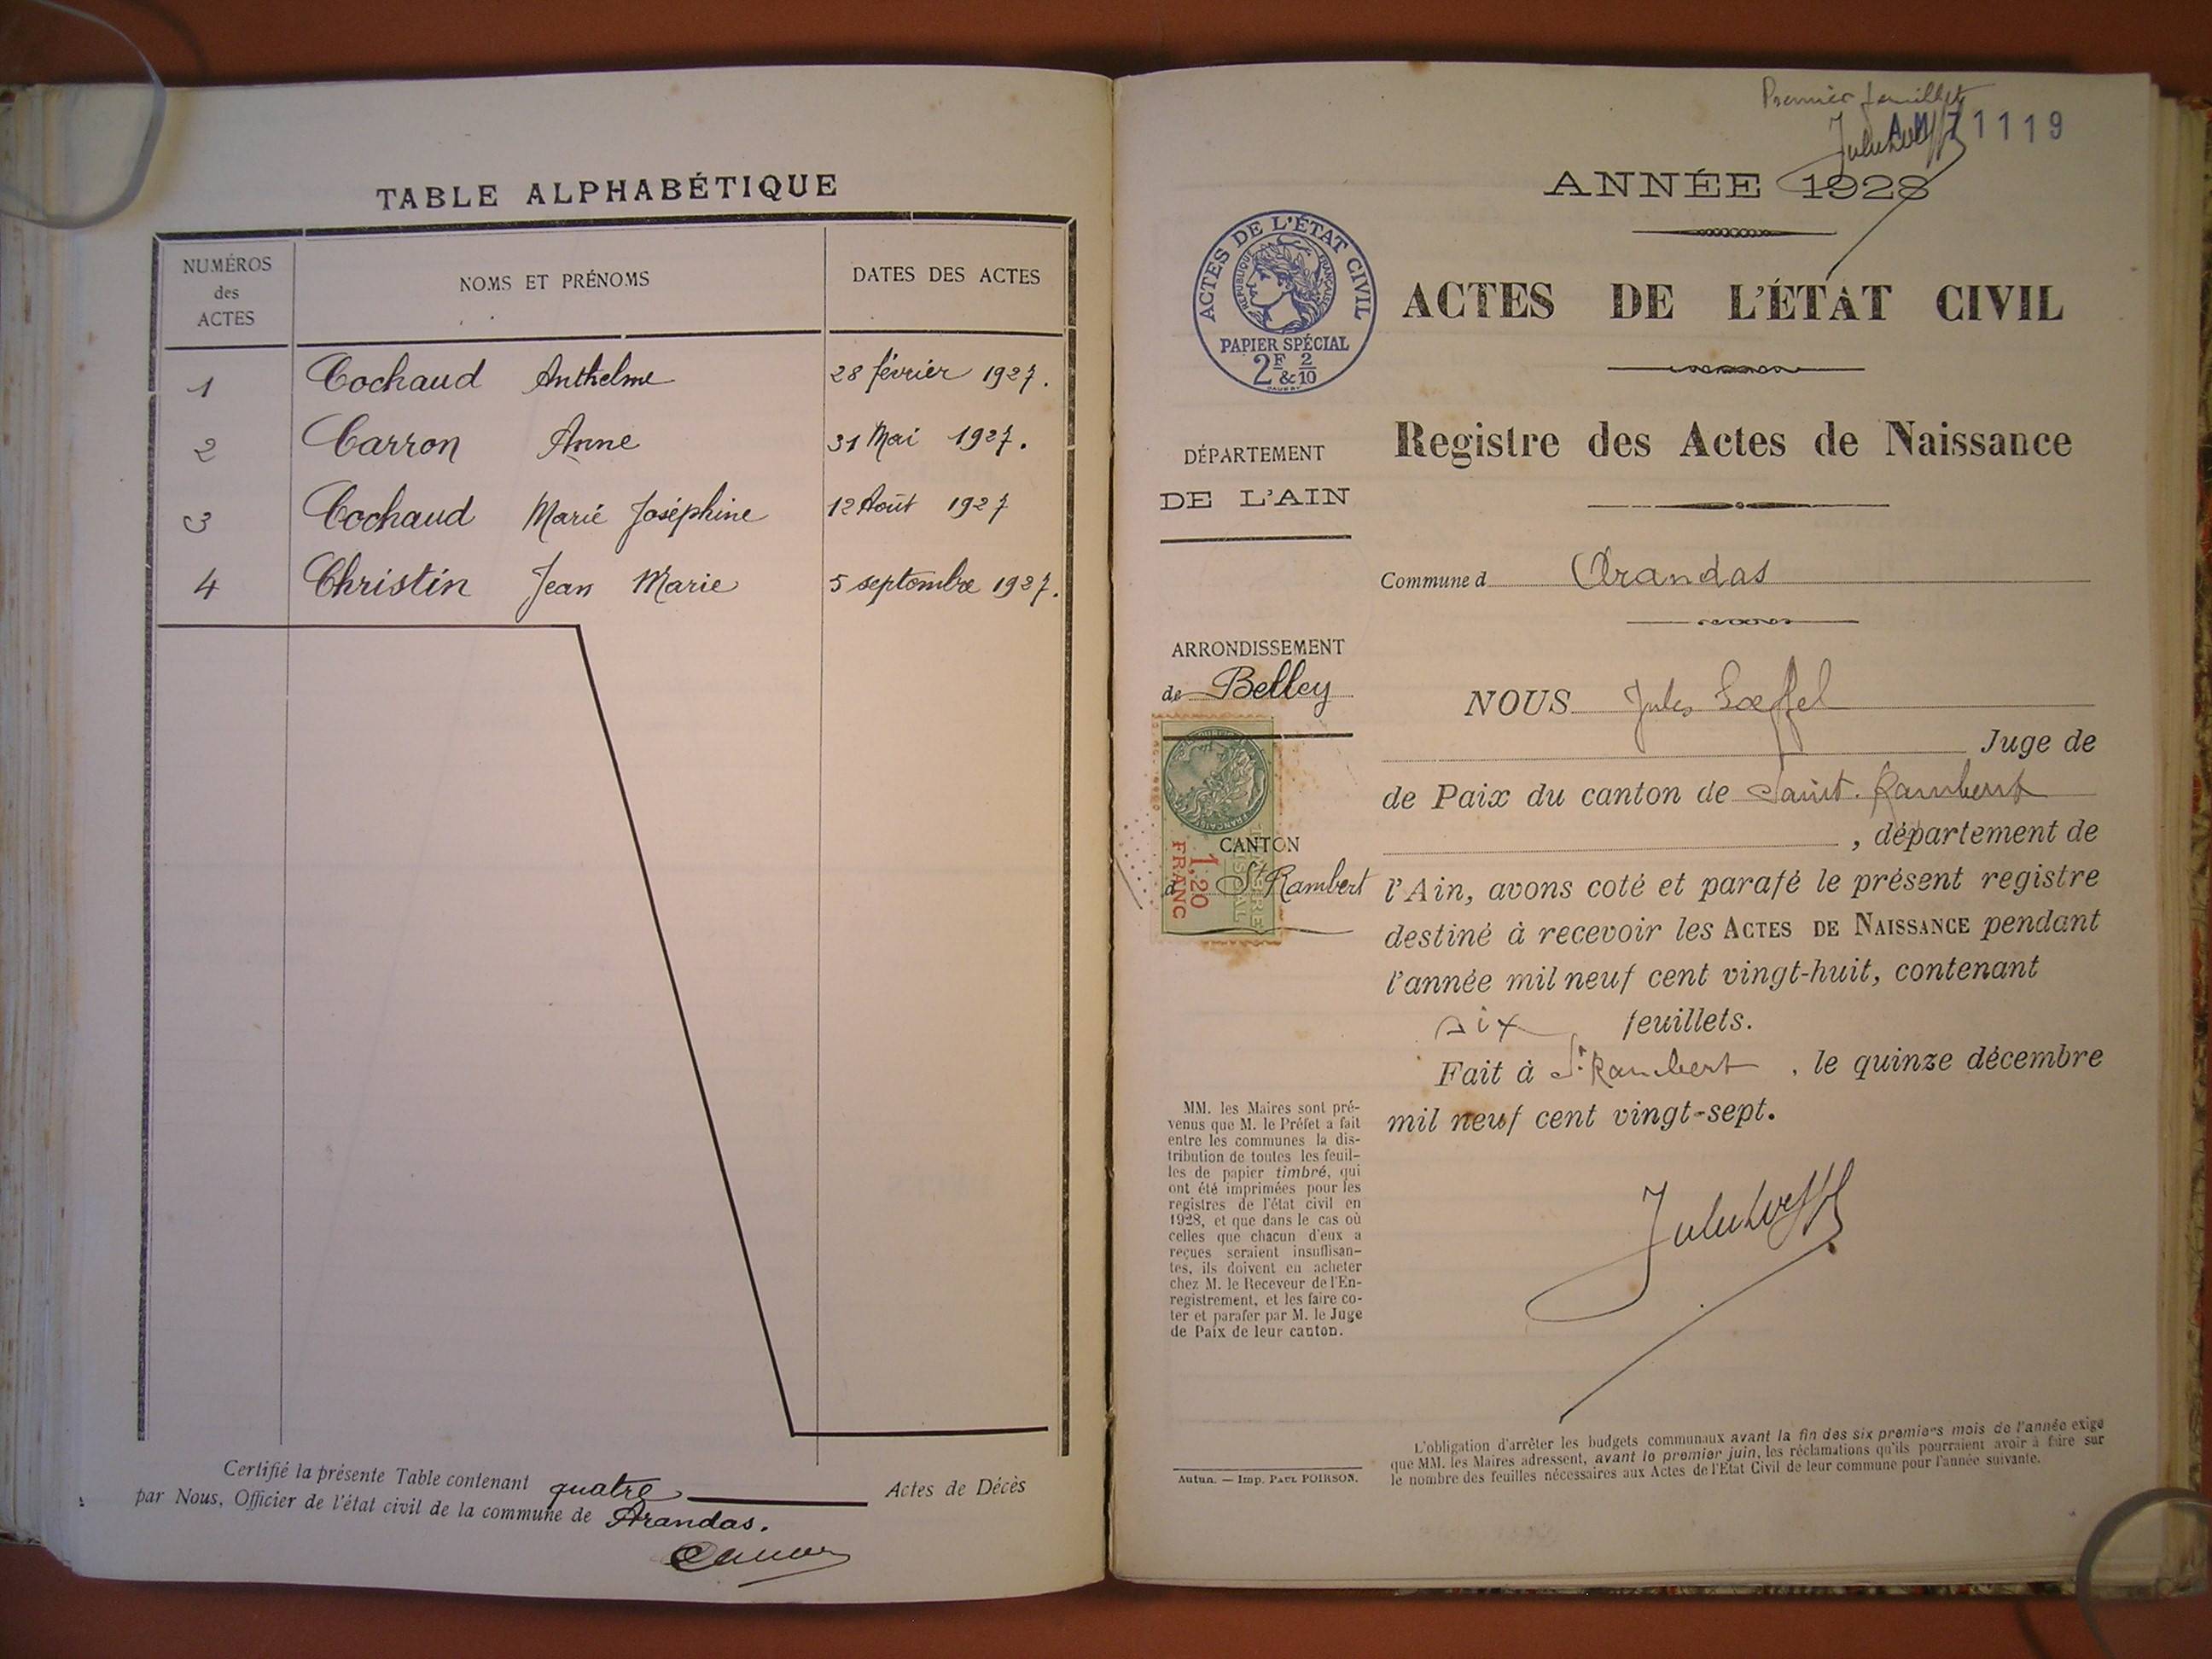 TABLE ALPHABÉTIQUE
NUMÉROS des ACTES NOMS ET PRÉNOMS DATES DES ACTES
1 Cochaud Anthelme 28 février 1927.
2 Carron Anne 31 Mai 1927.
3 Cochaud Marie Joséphine 12 Août 1927
4 Christin Jean Marie 5 septembre 1927.
Certifié la présente Table contenant quatre Actes de Décès
par Nous, Officier de l'état civil de la commune de Arandas.
Premier feuillet
1119
ANNÉE 1928
ACTES DE L'ÉTAT CIVIL
RÉPUBLIQUE FRANÇAISE
PAPIER SPÉCIAL
2F & 2/10
ACTES DE L'ÉTAT CIVIL
Registre des Actes de Naissance
DÉPARTEMENT
DE L'AIN
Commune d Arandas
ARRONDISSEMENT
de Belley
CANTON
d St Rambert
1,20
FRANC
NOUS Jules Loeffel
Juge de
de Paix du canton de Saint-Rambert
, département de
l'Ain, avons coté et parafé le présent registre
destiné à recevoir les ACTES DE NAISSANCE pendant
l'année mil neuf cent vingt-huit, contenant
six feuillets.
Fait à St Rambert, le quinze décembre
mil neuf cent vingt-sept.
MM. les Maires sont pré-
venus que M. le Préfet a fait
entre les communes la dis-
tribution de toutes les feuil-
les de papier timbré, qui
ont été imprimées pour les
registres de l'état civil en
1928, et que dans le cas où
celles que chacun d'eux a
reçues seraient insuffisan-
tes, ils doivent en acheter
chez M. le Receveur de l'En-
registrement, et les faire co-
ter et parafer par M. le Juge
de Paix de leur canton.
Autun. — Imp. PAUL POIRSON.
L'obligation d'arrêter les budgets communaux avant la fin des six premiers mois de l'année exige
que MM. les Maires adressent, avant le premier juin, les réclamations qu'ils pourraient avoir à faire sur
le nombre des feuilles nécessaires aux Actes de l'Etat Civil de leur commune pour l'année suivante.